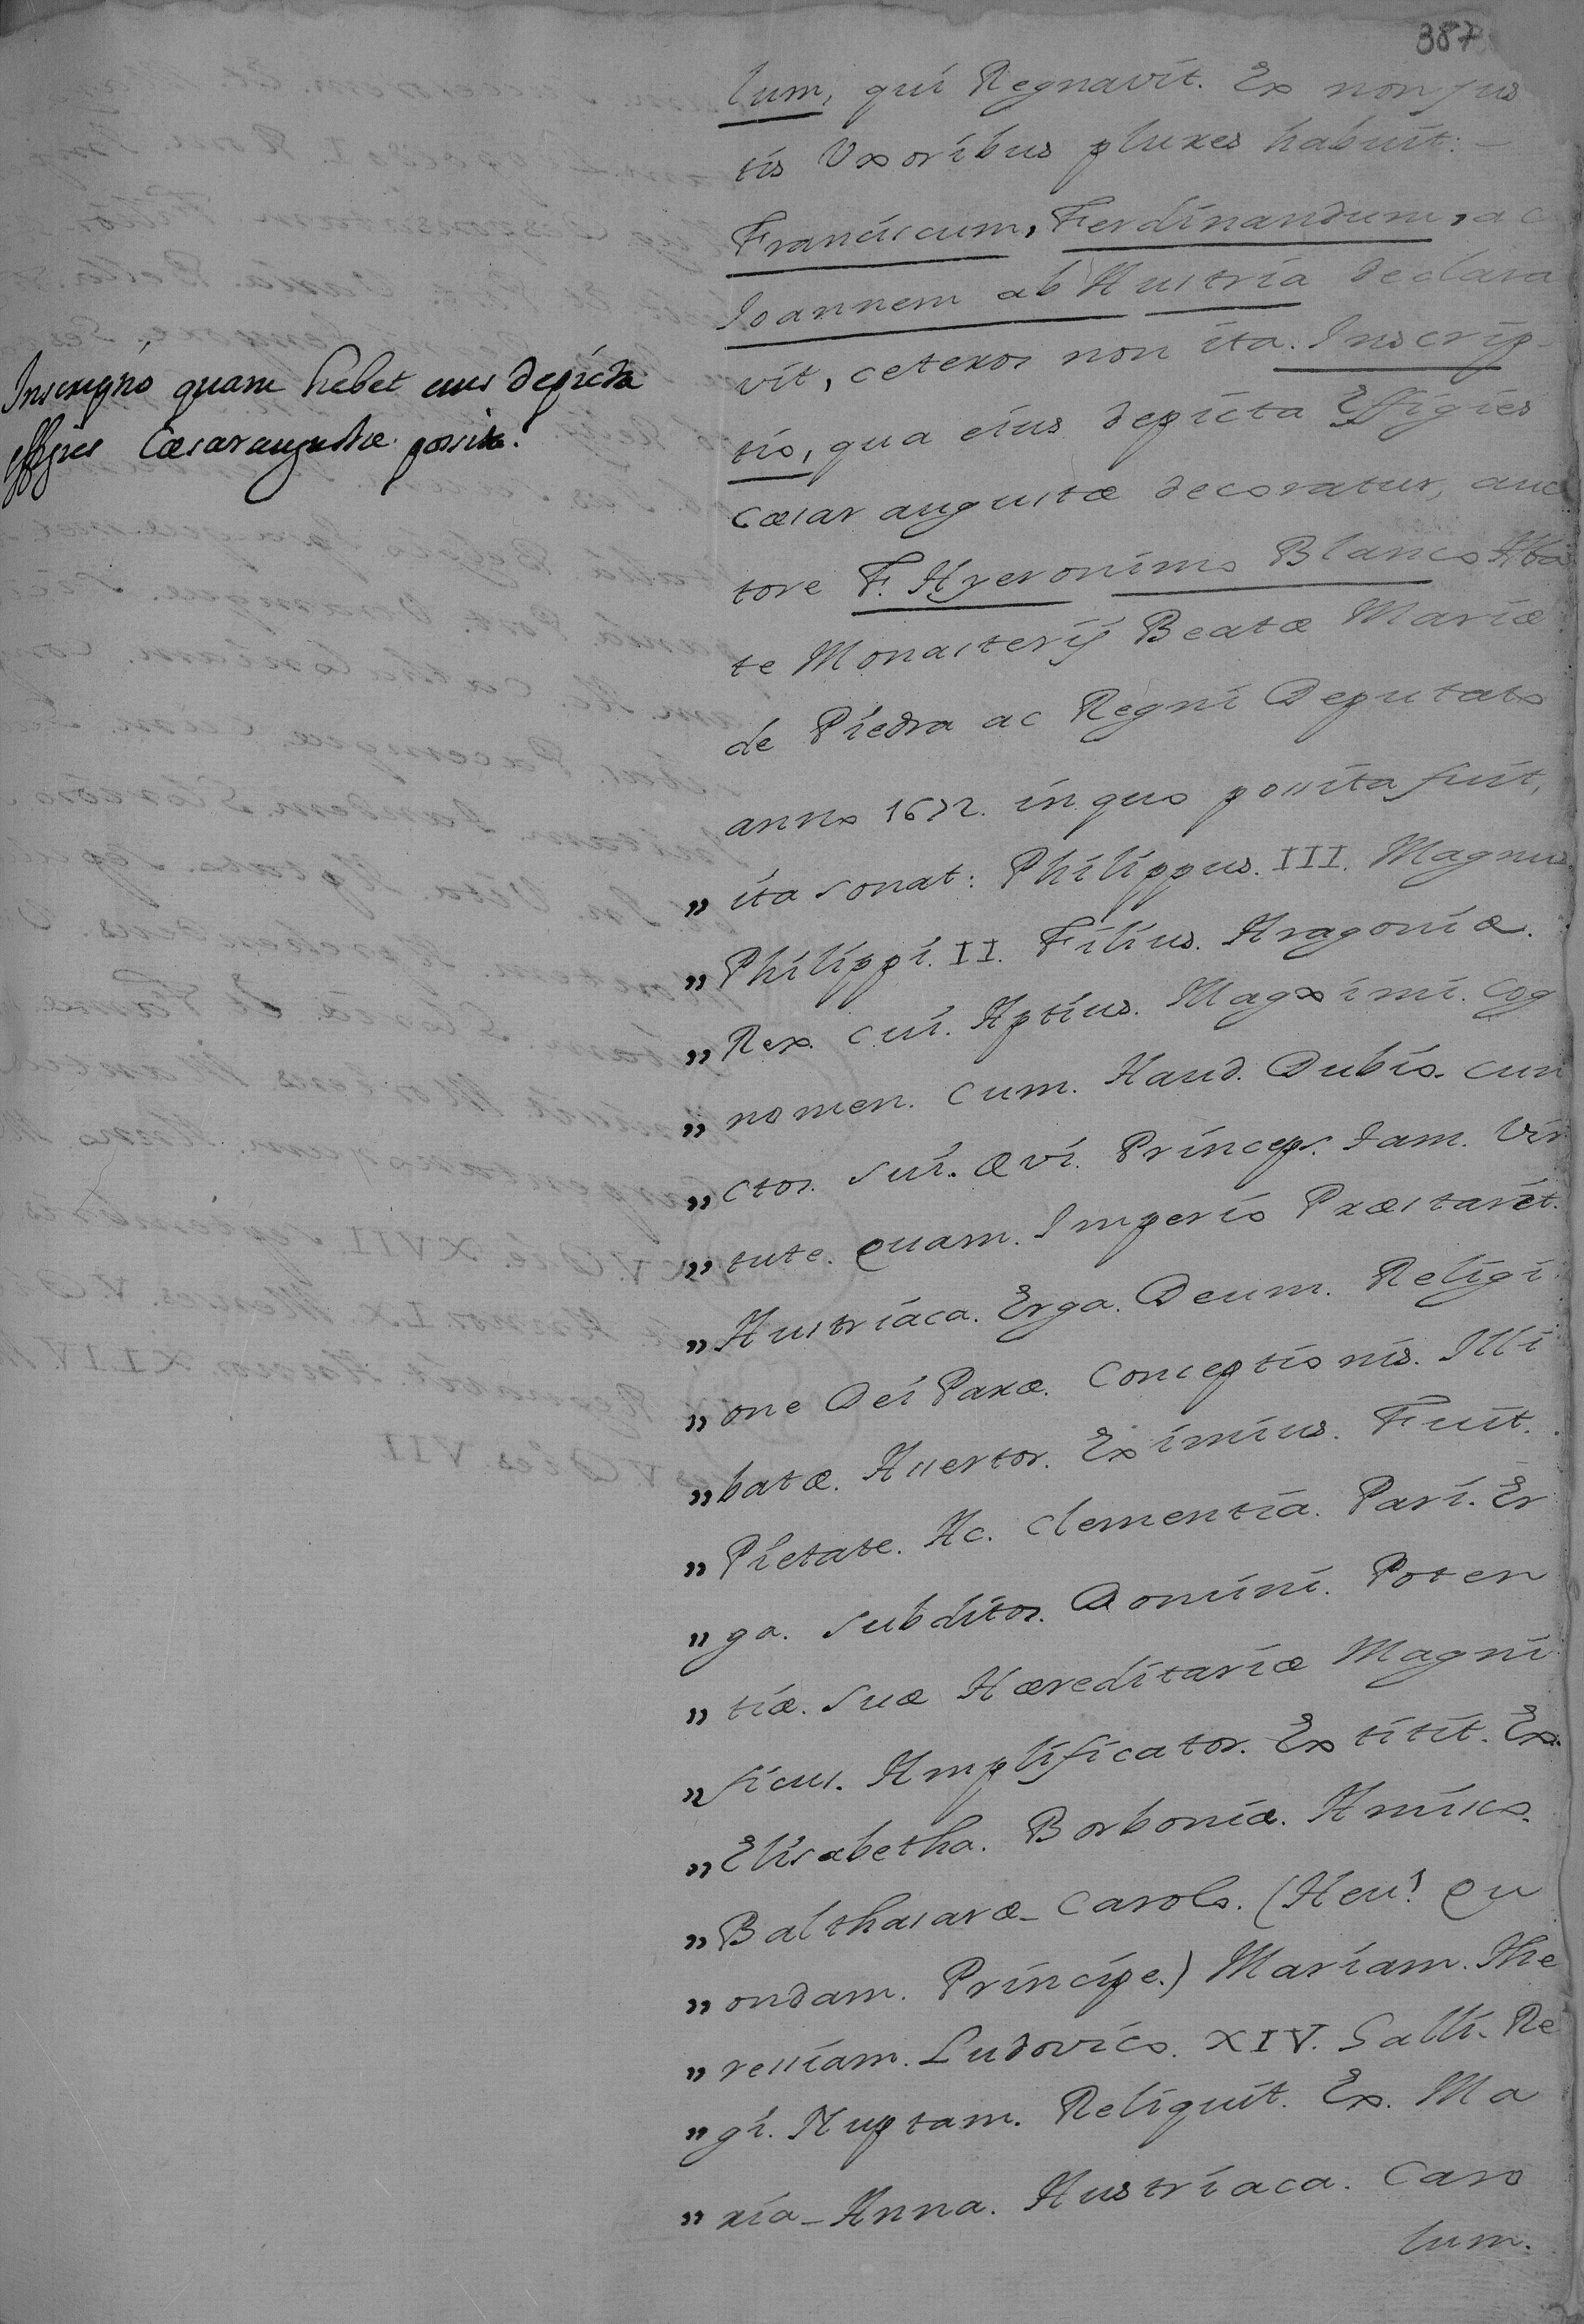 387
lum, qui Regnavit. Ex non jus
tis Uxoribus plures habuit: -
Franciscum, Ferdinandum, ac
Ioannem ab Austria declara
vit, ceteros non ita. Inscrip-
tio, qua eius depicta Effigies
Cæsar augustæ decoratur, auc
tore F. Hyeronimo Blanco Aba
te Monasterij Beatæ Mariæ
de Piedra ac Regni Deputato
anno 1672. in quo possita fuit,
„ ita sonat: Philippus. III. Magnus
„ Philippi. II. Filius. Aragoniæ.
„ Rex. Cui. Aptius. Magximi. Cog
„ nomen. Cum. Haud. Dubio. Cun
„ ctos. sui. Ævi. Princeps. Tam. Vir
„ tute. Quam. Imperio Præstaret.
„ Austriaca. Erga. Deum. Religi
„ one Dei Paræ. Conceptionis. Illi
„ batæ. Assertor. Eximius. Fuit.
„ Pietate. Ac. Clementia. Pari. Er
„ ga. subditos. Domini. Poten
„ tiæ. suæ Hæreditariæ Magni
„ ficus. Amplificator. Extitit. Ex.
„ Elisabetha. Borbonia. Amisso.
„ Balthasaræ_ Carolo. (Heu! Qu
„ ondam. Principe.) Mariam. The
„ ressiam. Ludovico. XIV. Galli. Re
„ gi. Nuptam. Reliquit. Ex. Ma
„ ria_Anna. Austriaca. Caro
lum.
Inscriptio quam habet eius depicta
effigies Cæsaraugustæ possita.